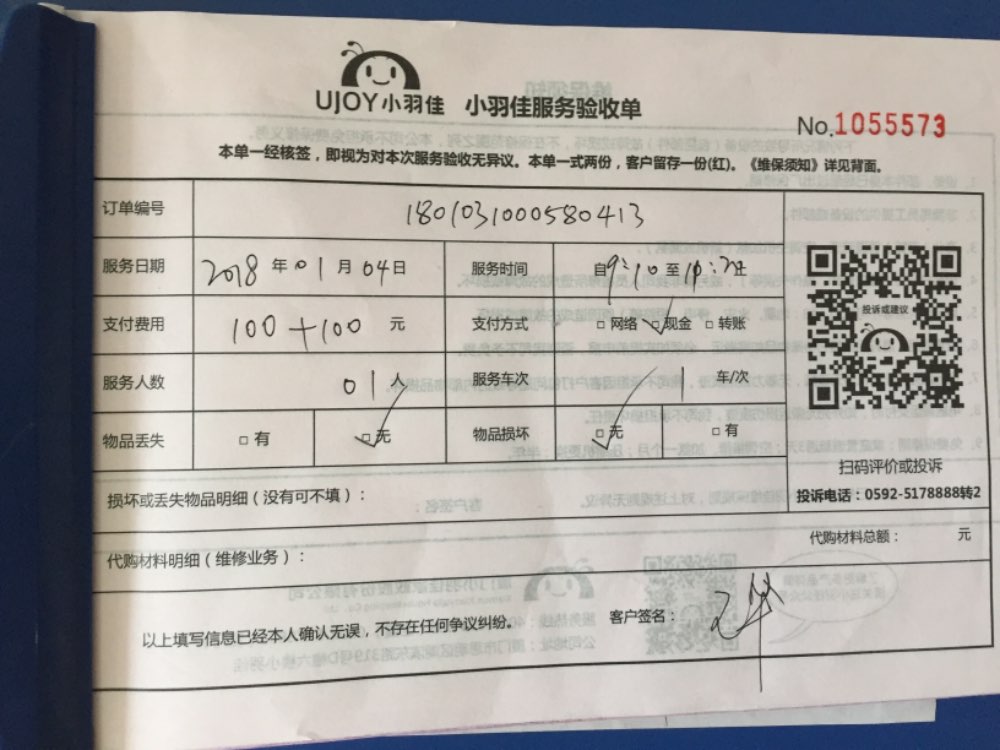 UJOY小羽佳 小羽佳服务验收单
No.1055573
本单一经核签，即视为对本次服务验收无异议。本单一式两份，客户留存一份(红)。《维保须知》详见背面。
订单编号 180103100580413
服务日期 2018 年 01 月 04 日 服务时间 自 9:10 至
支付费用 100+100 元 支付方式 □ 网络 ☑ 现金 □ 转账
服务人数 01 人 服务车次 1 车/次
物品丢失 □ 有 ☑ 无 物品损坏 ☑ 无 □ 有
投诉或建议
扫码评价或投诉
投诉电话：0592-5178888转2
损坏或丢失物品明细（没有可不填）：
代购材料明细（维修业务）： 代购材料总额： 元
以上填写信息已经本人确认无误，不存在任何争议纠纷。 客户签名：